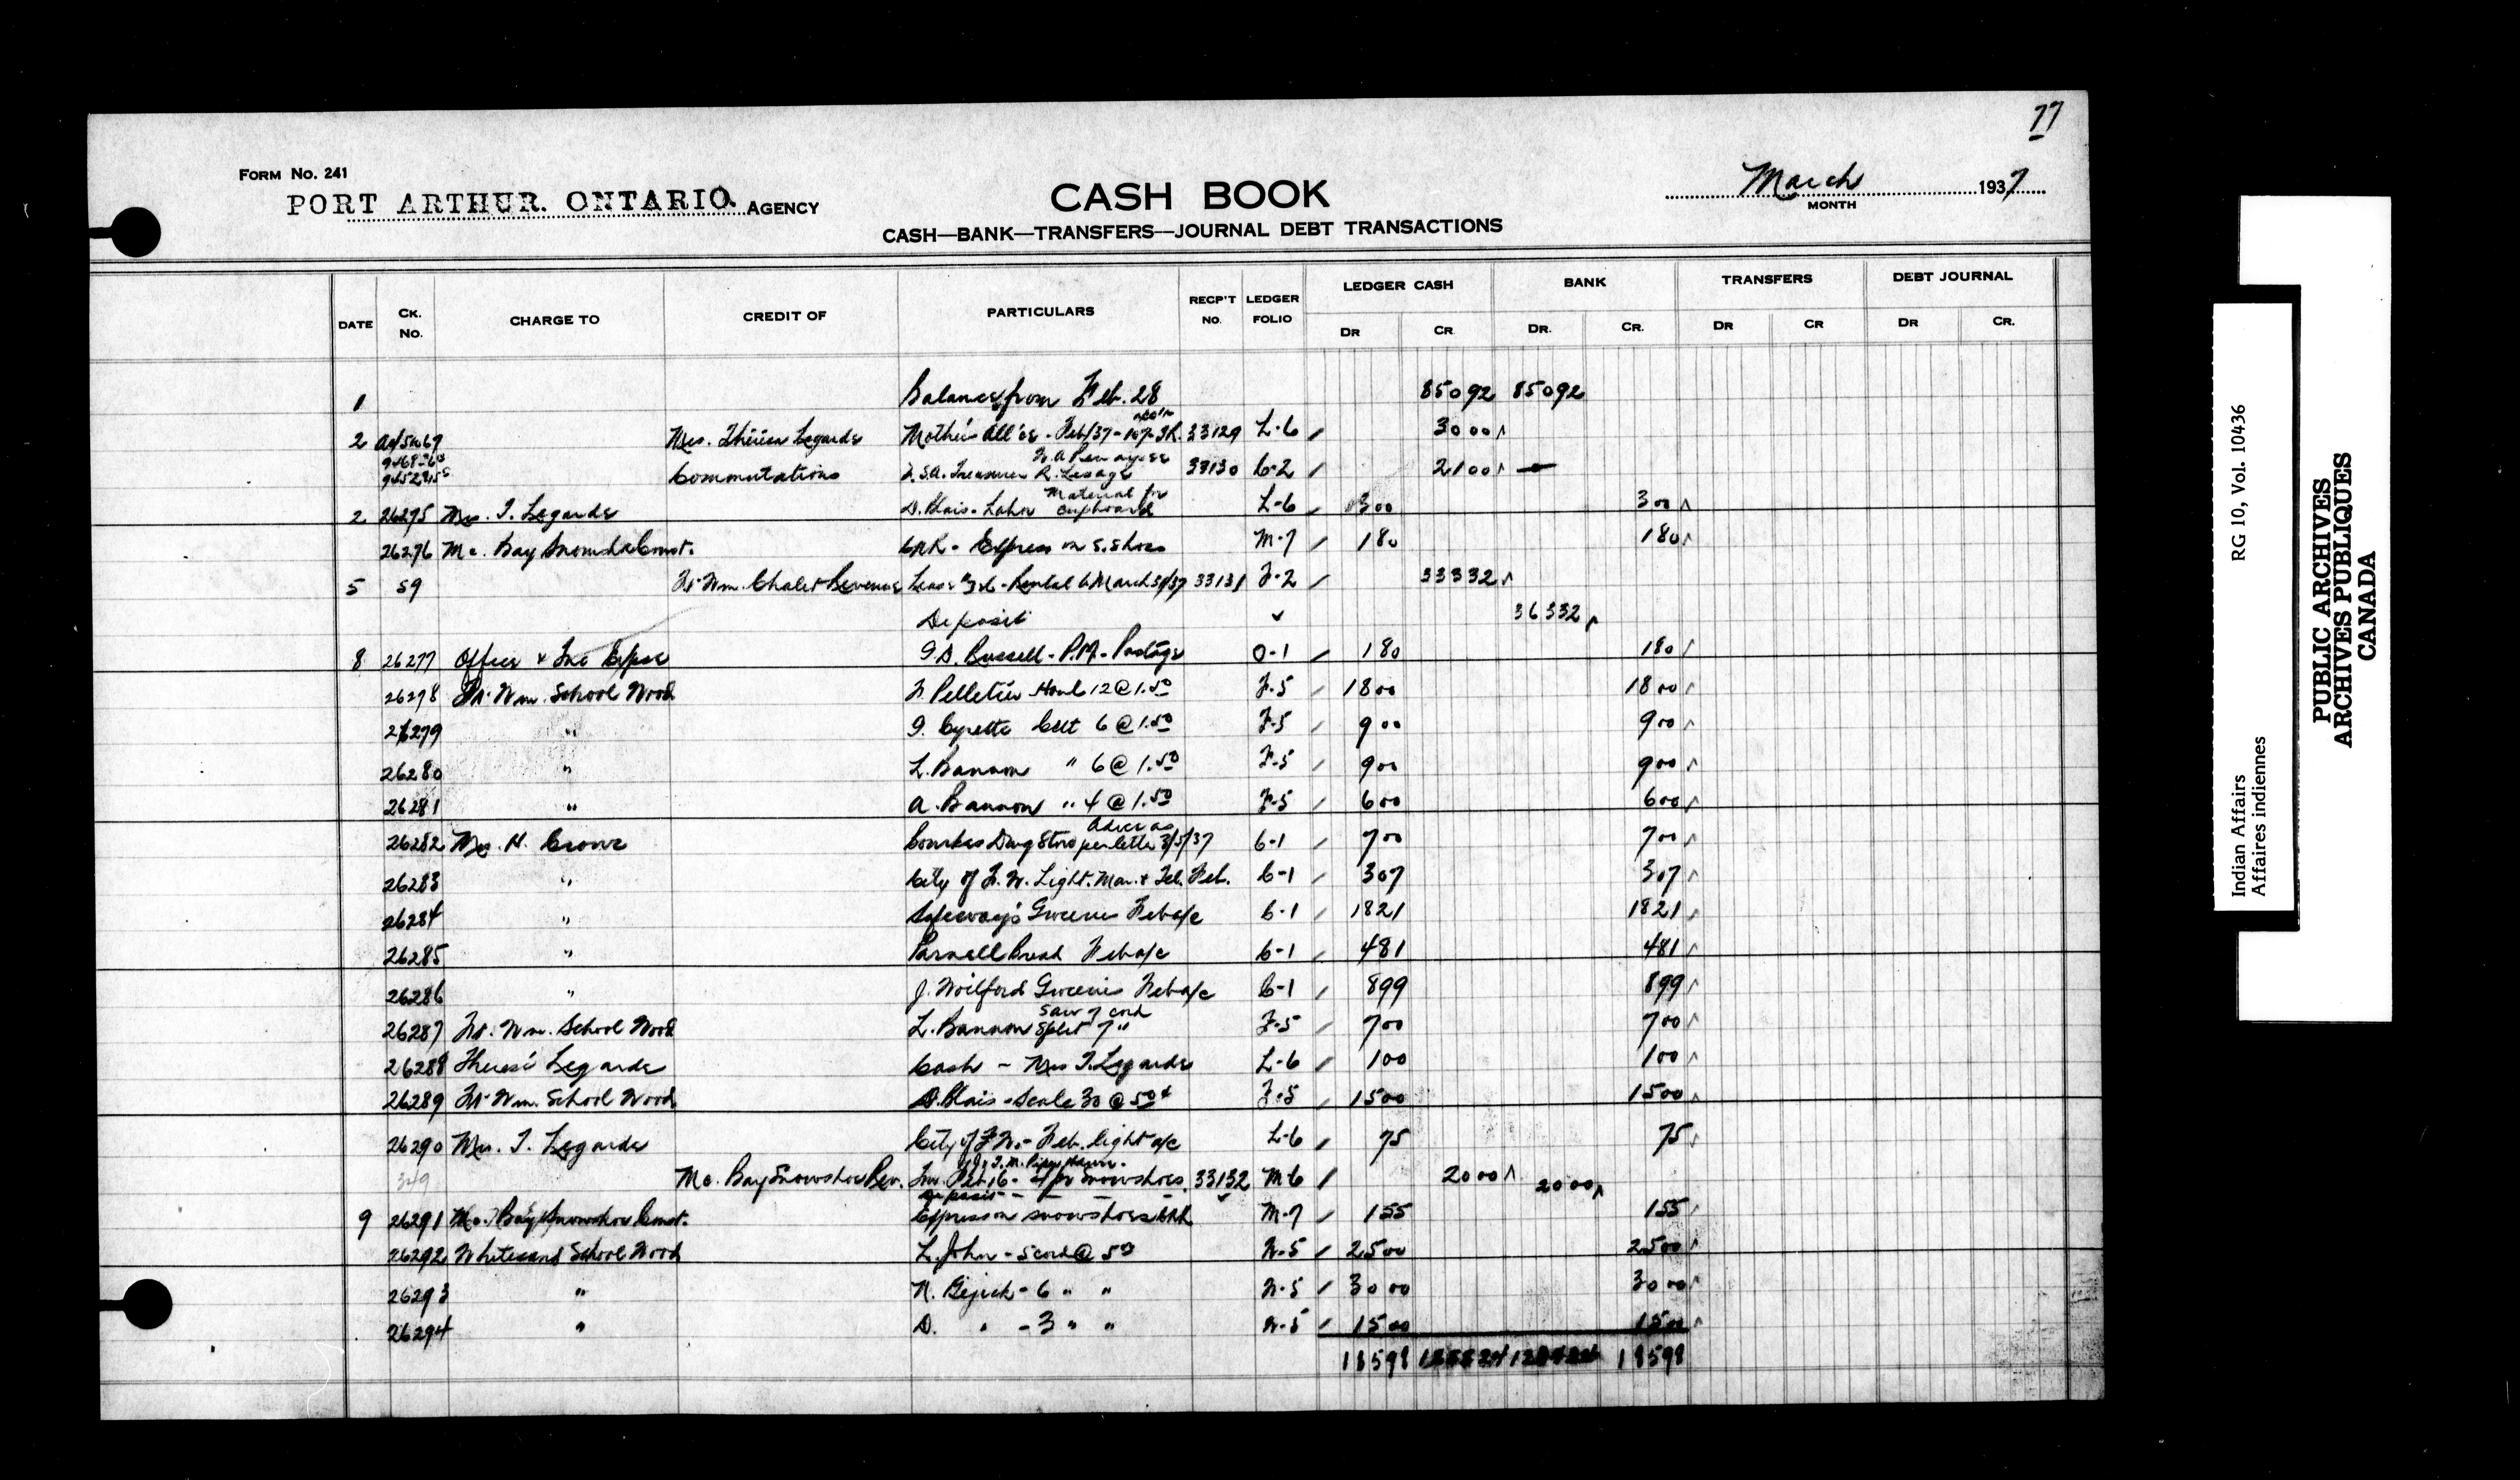 77
FORM NO. 241
PORT ARTHUR. ONTARIO. AGENCY
CASH BOOK
March 1937
MONTH
CASH—BANK—TRANSFERS—JOURNAL DEBT TRANSACTIONS
DATE CK. No. CHARGE TO CREDIT OF PARTICULARS RECP'T NO. LEDGER FOLIO LEDGER CASH BANK TRANSFERS DEBT JOURNAL
DR CR DR. CR. DR CR DR CR.
1 Balance from Feb. 28 85092 85092
2 Mrs. Thérèse Legarde Mother's All'ce - Feb/37 - 33129 L-6 3000
Commutations R. Lesage 33130 C-2 2100 —
2 26275 Mrs. T. Legarde D. Blais - Labor Material for cupboard L-6 300 300
26276 Mc. Bay Snowshoe Const. CNR - Express on S. Shoes M-7 180 180
5 59 Ft. Wm. Chalet Revenue Lease - Rental to March 31/37 33131 F-2 33332
Deposit 36332
8 26277 Office & Inc Expse G.D. Russell - P.M. - Postage O-1 180 180
26278 Ft. Wm. School Wood F. Pelletier Haul 12 @ 1.50 F-5 1800 1800
26279 " G. Cyrette Cut 6 @ 1.50 F-5 900 900
26280 " L. Bannon " 6 @ 1.50 F-5 900 900
26281 " A. Bannon " 4 @ 1.50 F-5 600 600
26282 Mrs. H. Crowe Courkes Drug Store per letter 3/5/37 C-1 700 700
26283 " City of F.W. Light. Mar. & Tel. Feb. C-1 307 307
26284 " Safeway's Groceries Feb a/c C-1 1821 1821
26285 " Parnell Bread Feb a/c C-1 481 481
26286 " J. Wilford Groceries Feb a/c C-1 899 899
26287 Ft. Wm. School Wood L. Bannon Saw 7 cord Split 7 " F-5 700 700
26288 Therese Legarde Cash - Mrs T. Legarde L-6 100 100
26289 Ft. Wm. School Wood D. Blais - Scale 30 @ 50¢ F-5 1500 1500
26290 Mrs. T. Legarde City of F.W. - Feb. light a/c L-6 75 75
349 Mc. Bay Snowshoe Rev. Inv. Feb 16 - 4 pr Snowshoes 33132 M-6 2000 2000
Deposit - - - -
9 26291 Mc. Bay Snowshoe Const. Express on snowshoes CNR M-7 155 155
26292 Whitesand School Wood L. John - 5 cord @ 5.00 W-5 2500 2500
26293 " N. Gijick - 6 " " W-5 3000 3000
26294 " D. " - 3 " " W-5 1500 1500
18598 18598
Indian Affairs RG 10, Vol. 10436
Affaires indiennes
PUBLIC ARCHIVES
ARCHIVES PUBLIQUES
CANADA